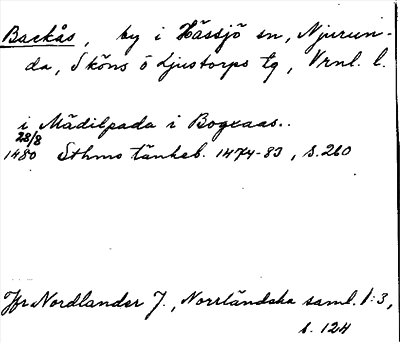 Backås, by i Hässjö sn, Njurun-
da, Sköns o Ljustorps tg, Vrnl. l.
i Mädilpada i Bogxaas..
28/8
1480 Sthms tänkeb. 1474-83, s. 260
Jfr Nordlander J., Norrländska saml. 1:3,
s. 124